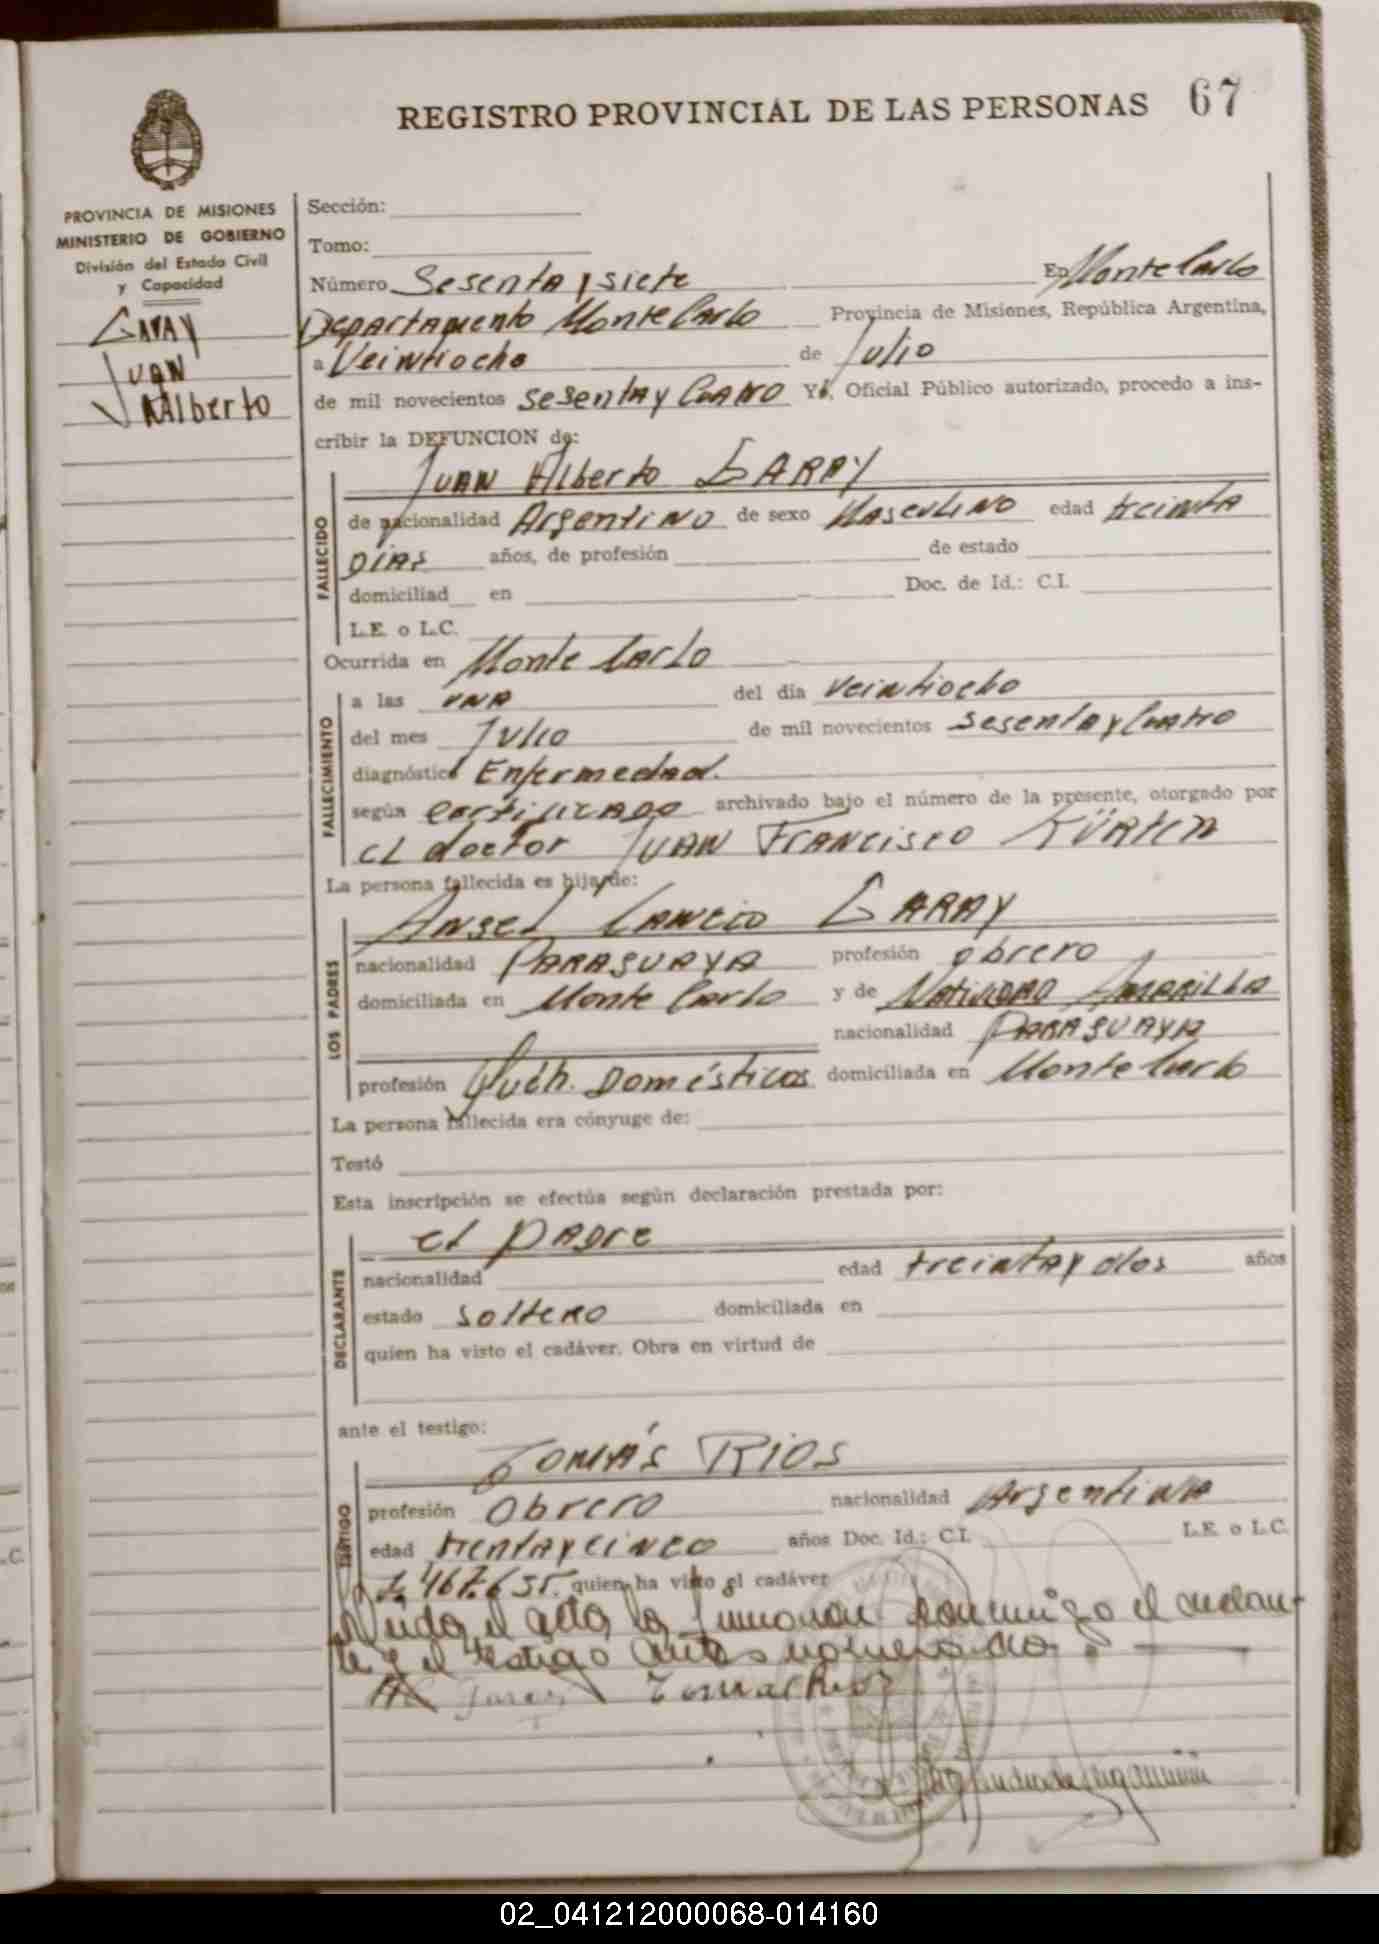 REGISTRO PROVINCIAL DE LAS PERSONAS 67
PROVINCIA DE MISIONES
MINISTERIO DE GOBIERNO
División del Estado Civil
y Capacidad
GARAY
JUAN
Alberto
Sección:
Tomo:
Número Sesenta y siete En Monte Carlo
Departamento Monte Carlo Provincia de Misiones, República Argentina,
a Veintiocho de Julio
de mil novecientos sesenta y Cuatro Yo, Oficial Público autorizado, procedo a ins-
cribir la DEFUNCION de:
JUAN Alberto GARAY
FALLECIDO
de nacionalidad Argentino de sexo Masculino edad treinta
DIAS años, de profesión de estado
domiciliad en Doc. de Id.: C.I.
L.E. o L.C.
Ocurrida en Monte Carlo
FALLECIMIENTO
a las una del día veintiocho
del mes Julio de mil novecientos sesenta y Cuatro
diagnóstico Enfermedad.
según certificado archivado bajo el número de la presente, otorgado por
el doctor JUAN FRANCISCO KÜRTEN
La persona fallecida es hija de:
LOS PADRES
ANGEL CANCIO GARAY
nacionalidad PARAGUAYA profesión obrero
domiciliada en Monte Carlo y de NATIVIDAD AMARILLA
nacionalidad PARAGUAYA
profesión Queh. Domésticos domiciliada en Monte Carlo
La persona fallecida era cónyuge de:
Testó
Esta inscripción se efectúa según declaración prestada por:
DECLARANTE
el padre
nacionalidad edad treinta y dos años
estado soltero domiciliada en
quien ha visto el cadáver. Obra en virtud de
ante el testigo:
TESTIGO
TOMÁS RIOS
profesión Obrero nacionalidad Argentina
edad treinta y cinco años Doc. Id.: C.I. L.E. o L.C.
7.467.635. quien ha visto el cadáver
Leida el acta la firmaron conmigo el declaran-
te y el testigo antes nombrado.
Garay Tomas Rios
02_041212000068-014160